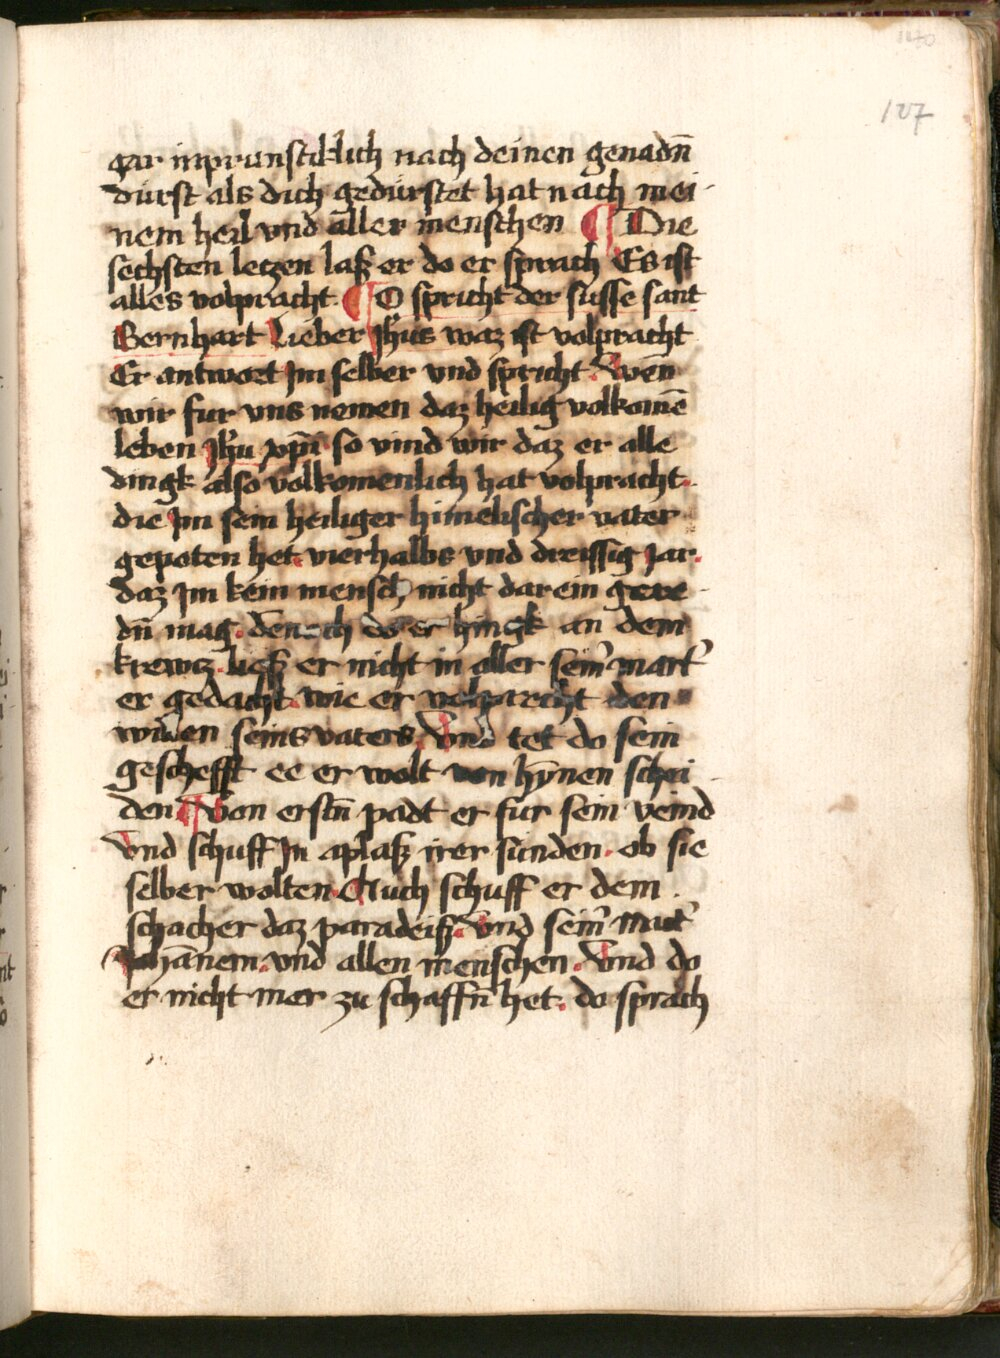 140
127
gar inprunstiklich nach deinen genadn̄
dürst als dich gedürstet hat nach mei-
nem heil vnd aller menschen ¶ Die
sechsten letzen laß er do er sprach Es ist
alles volpracht. ¶ O spricht der susse sant
Bernhart Lieber Jhus waz ist volpracht
Er antwort Jm selber vnd spricht. Wen̄
wir fur vns nemen daz heilig volkomē
leben Jhu xp̄i so vind wir daz er alle
dingk also volkomenlich hat volpracht.
die Jm sein heiliger himelischer vater
gepoten het. vierhalbs vnd dreissig Jar.
daz Jm kein mensch nicht darein gere-
dn̄ mag. dennoch do er hingk an dem
krewtz. ließ er nicht in aller seinr̄ mart̄
er gedacht. wie er volprecht den
willen seins vaters. Vnd tet do sein
geschefft ee er wolt von hȳnen schei-
den ¶ Von erstn̄ padt er fur sein veind
Vnd schuff Jn aplaß irer sünden. ob sie
selber wolten. Auch schuff er dem
schacher daz paradeiß. Vnd seinr̄ mut̄
Johānem. vnd allen menschen. Vnd do
er nicht mer zu schaffn̄ het. do sprach